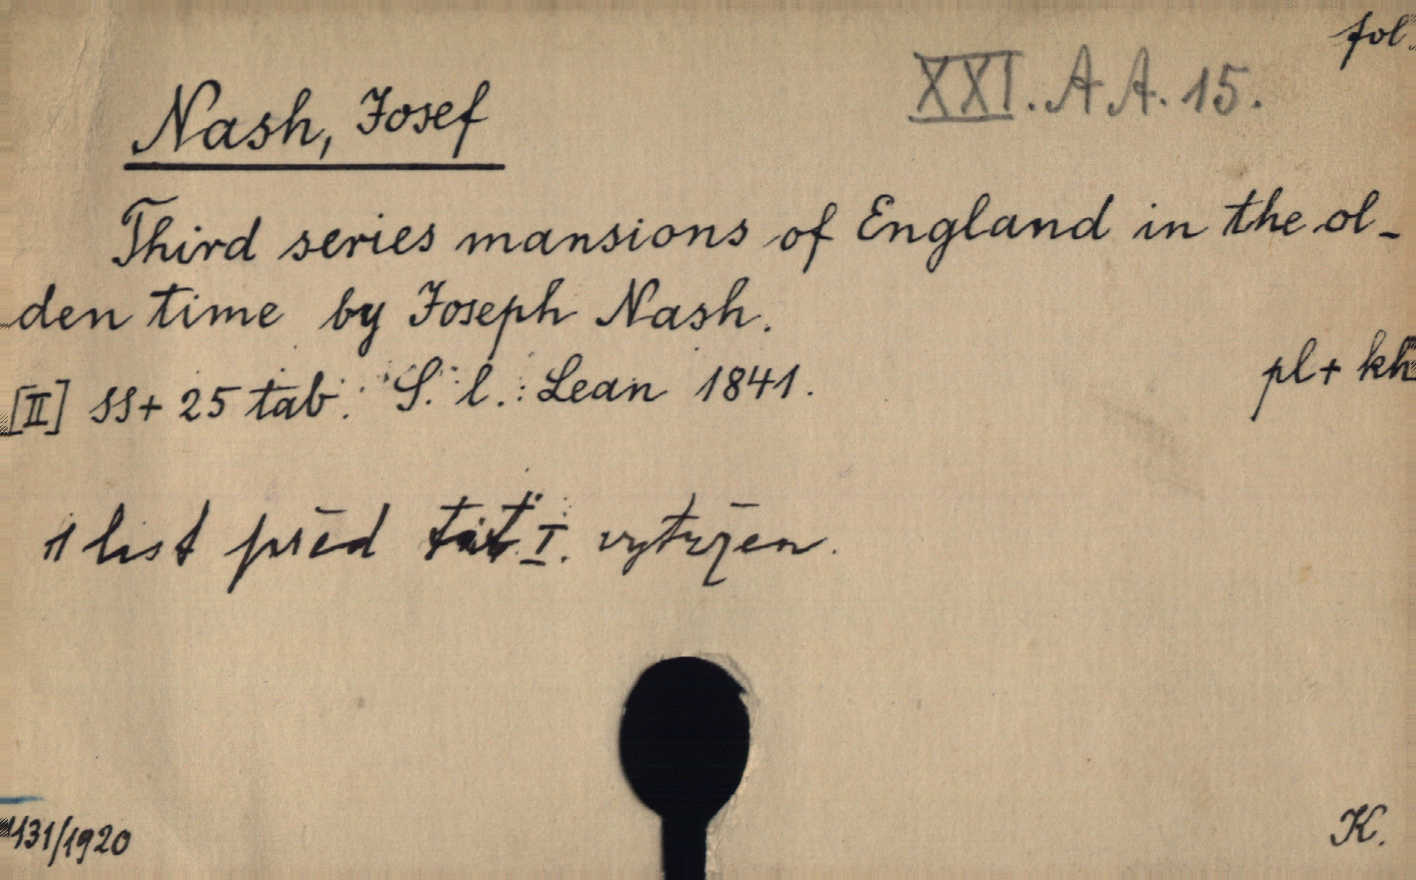 fol.
XXI. A A. 15.
Nash, Josef
Third series mansions of England in the ol-
den time by Joseph Nash.
[II] SS + 25 tab. S. l.: Lean 1841.
pl + kh
1 list před tit I. vytržen.
131/1920
K.